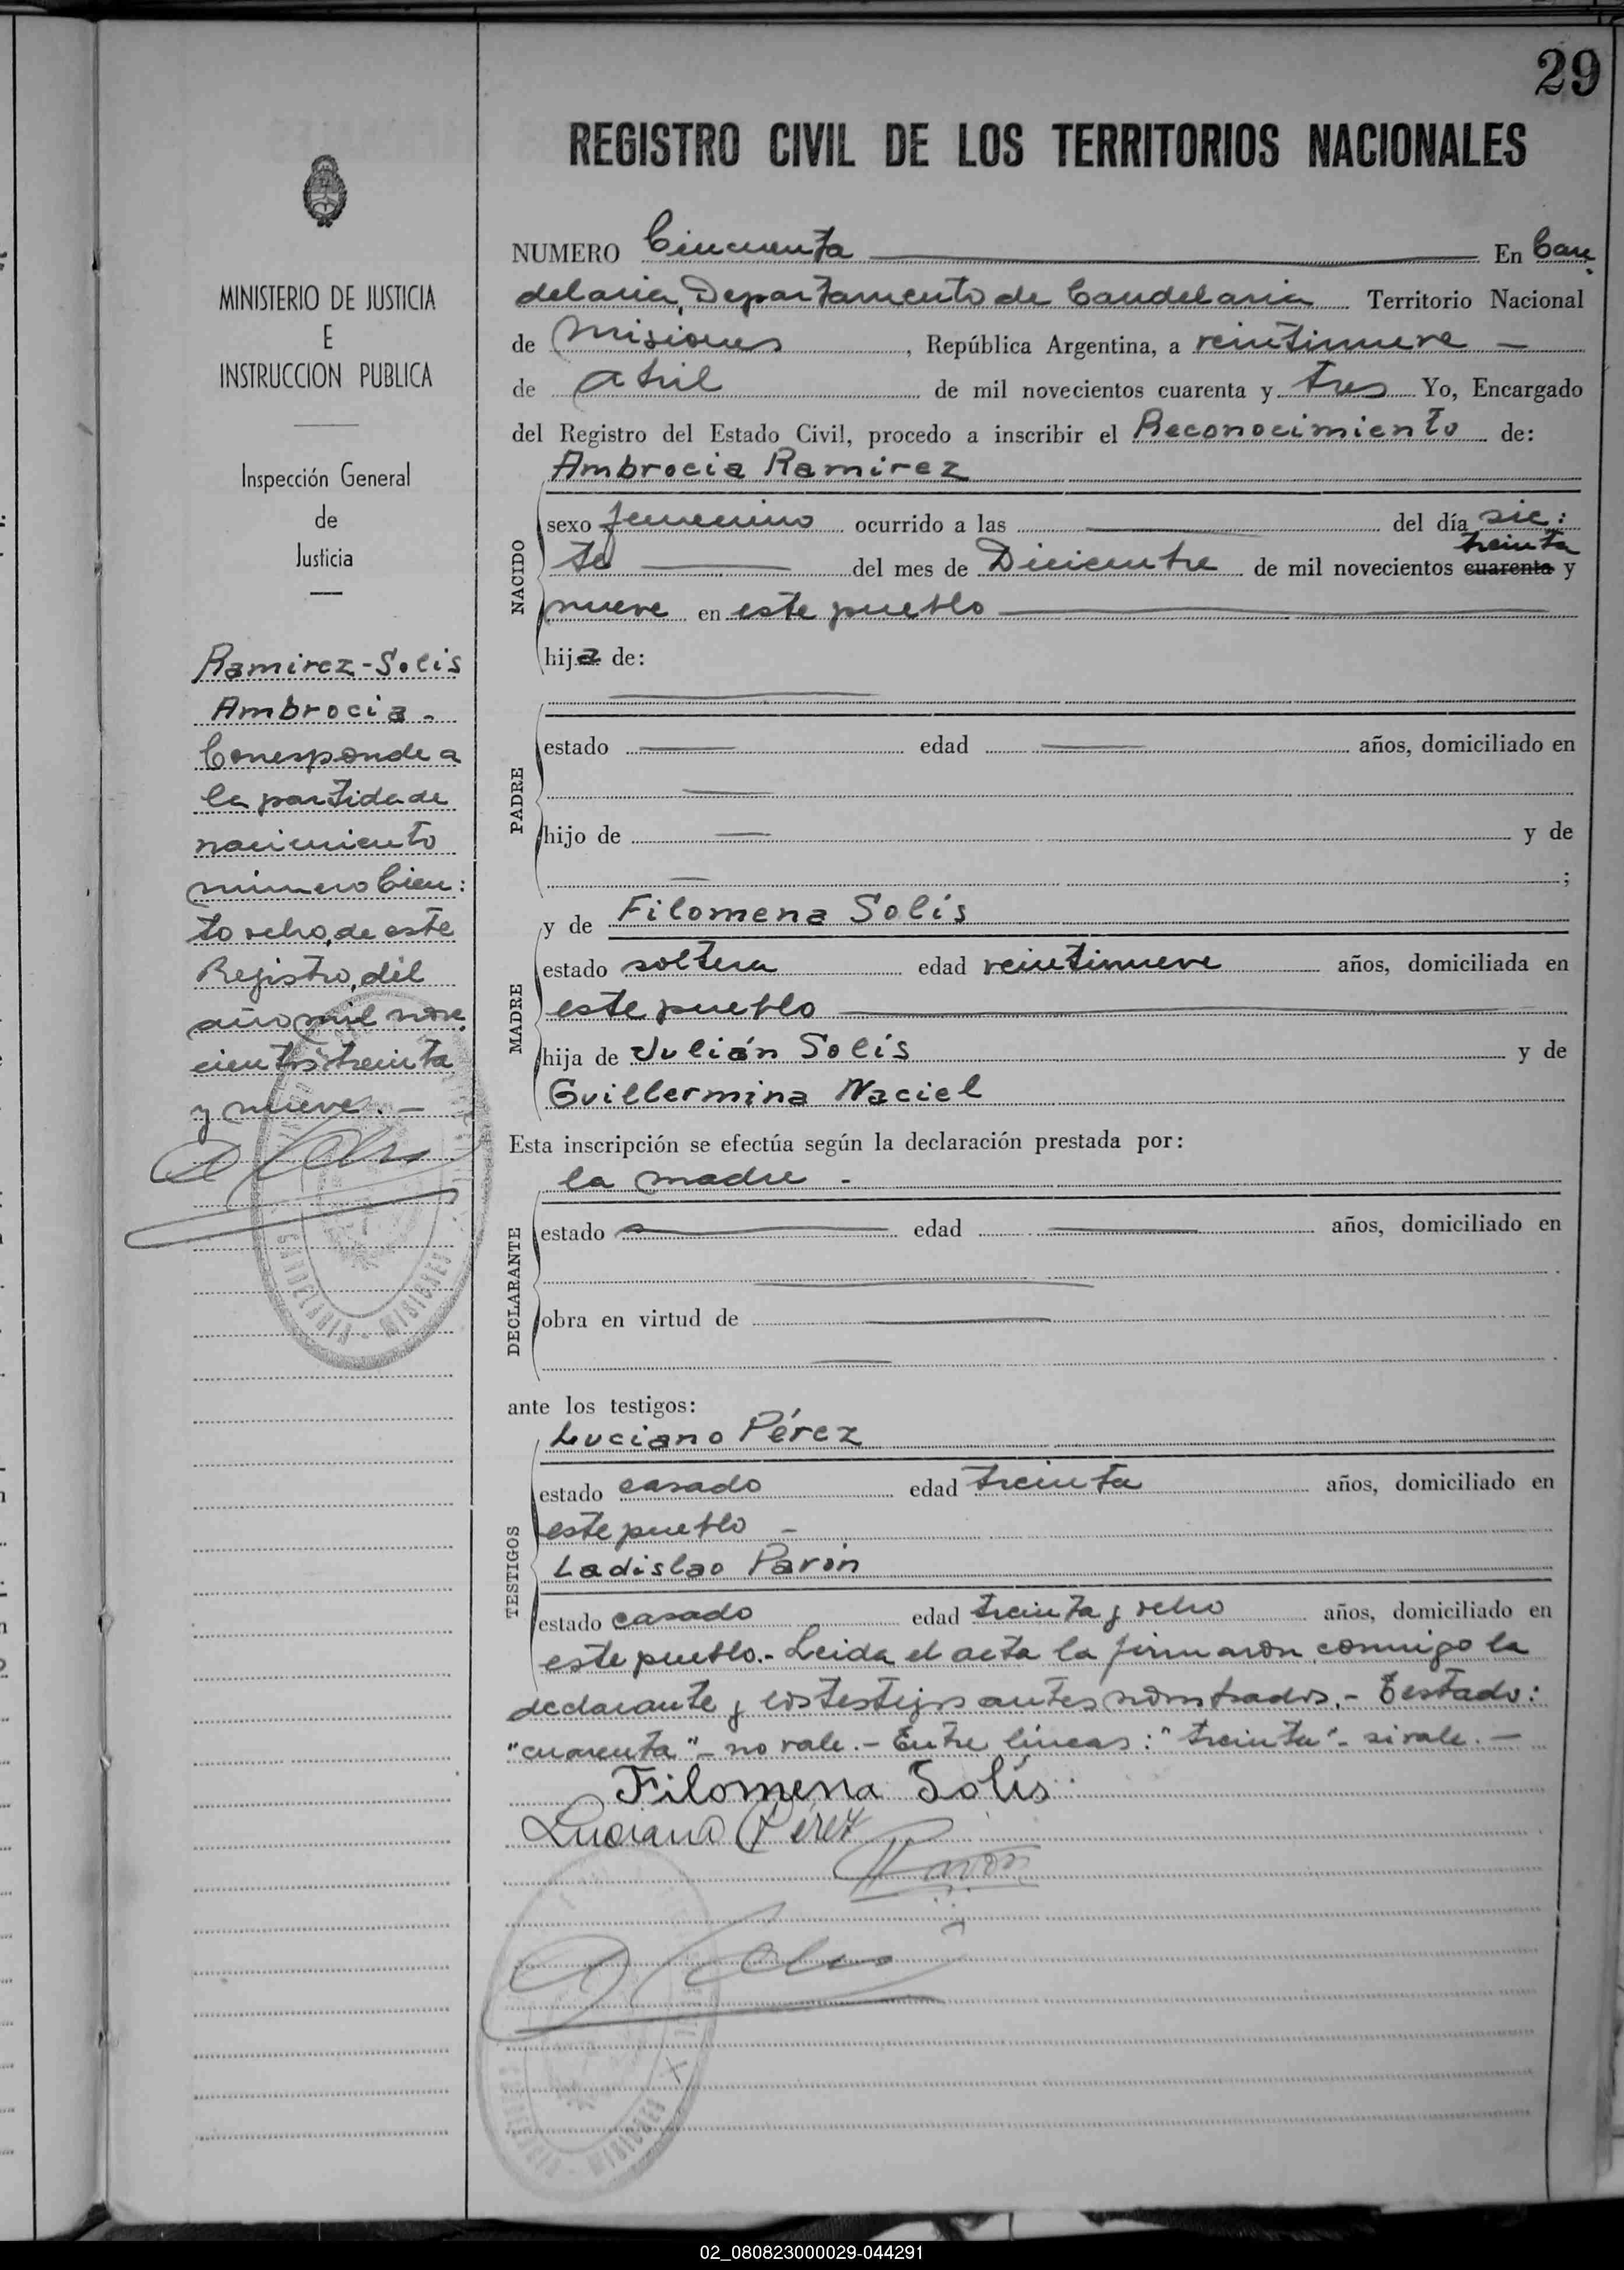 29
REGISTRO CIVIL DE LOS TERRITORIOS NACIONALES
MINISTERIO DE JUSTICIA
E
INSTRUCCION PUBLICA
Inspección General
de
Justicia
Ramirez-Solis
Ambrocia.-
Corresponde a
la partida de
nacimiento
número Cien:
to ocho, de este
Registro, del
año mil nove
cientos treinta
y nueve.-
CANDELARIA - MISIONES
NUMERO Cincuenta En Can
delaria, Departamento de Candelaria Territorio Nacional
de Misiones, República Argentina, a veintinueve -
de Abril de mil novecientos cuarenta y tres Yo, Encargado
del Registro del Estado Civil, procedo a inscribir el Reconocimiento de:
Ambrocia Ramirez
NACIDO
sexo femenino ocurrido a las del día sie:
te del mes de Diciembre de mil novecientos cuarenta treinta y
nueve en este pueblo
hija de:
PADRE
estado edad años, domiciliado en
hijo de y de
;
y de Filomena Solís
MADRE
estado soltera edad veintinueve años, domiciliada en
este pueblo
hija de Julián Solís y de
Guillermina Naciel
Esta inscripción se efectúa según la declaración prestada por:
la madre -
DECLARANTE
estado edad años, domiciliado en
obra en virtud de
ante los testigos:
TESTIGOS
Luciano Pérez
estado casado edad treinta años, domiciliado en
este pueblo -
Ladislao Pavón
estado casado edad treinta y ocho años, domiciliado en
este pueblo.- Leida el acta la firmaron conmigo la
declarante y los testigos antes nombrados.- Testado:
"cuarenta" - no vale.- Entre líneas: "treinta" - si vale.-
Filomena Solís
Luciano Pérez
Pavón
CANDELARIA - MISIONES
02_080823000029-044291